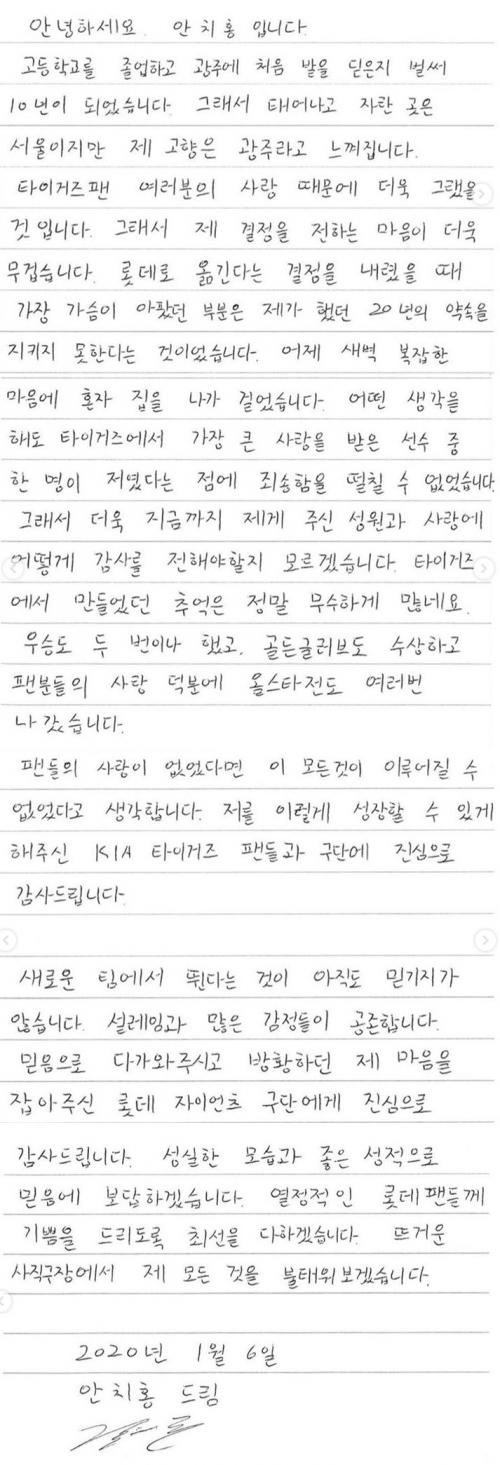 안녕하세요. 안치홍 입니다.
고등학교를 졸업하고 광주에 처음 발을 딛은지 벌써
10년이 되었습니다. 그래서 태어나고 자란 곳은
서울이지만 제 고향은 광주라고 느껴집니다.
타이거즈팬 여러분의 사랑 때문에 더욱 그랬을
것 입니다. 그래서 제 결정을 전하는 마음이 더욱
무겁습니다. 롯데로 옮긴다는 결정을 내렸을 때
가장 가슴이 아팠던 부분은 제가 했던 20년의 약속을
지키지 못한다는 것이었습니다. 어제 새벽 복잡한
마음에 혼자 집을 나가 걸었습니다. 어떤 생각을
해도 타이거즈에서 가장 큰 사랑을 받은 선수 중
한 명이 저였다는 점에 죄송함을 떨칠 수 없었습니다
그래서 더욱 지금까지 제게 주신 성원과 사랑에
어떻게 감사를 전해야할지 모르겠습니다. 타이거즈
에서 만들었던 추억은 정말 무수하게 많네요.
우승도 두 번이나 했고, 골든글러브도 수상하고
팬분들의 사랑 덕분에 올스타전도 여러번
나갔습니다.
팬들의 사랑이 없었다면 이 모든것이 이루어질 수
없었다고 생각합니다. 저를 이렇게 성장할 수 있게
해주신 KIA 타이거즈 팬들과 구단에 진심으로
감사드립니다.
새로운 팀에서 뛴다는 것이 아직도 믿기지가
않습니다. 설레임과 많은 감정들이 공존합니다.
믿음으로 다가와주시고 방황하던 제 마음을
잡아주신 롯데 자이언츠 구단에게 진심으로
감사드립니다. 성실한 모습과 좋은 성적으로
믿음에 보답하겠습니다. 열정적인 롯데팬들께
기쁨을 드리도록 최선을 다하겠습니다. 뜨거운
사직구장에서 제 모든 것을 불태워보겠습니다.
2020년 1월 6일
안치홍 드림